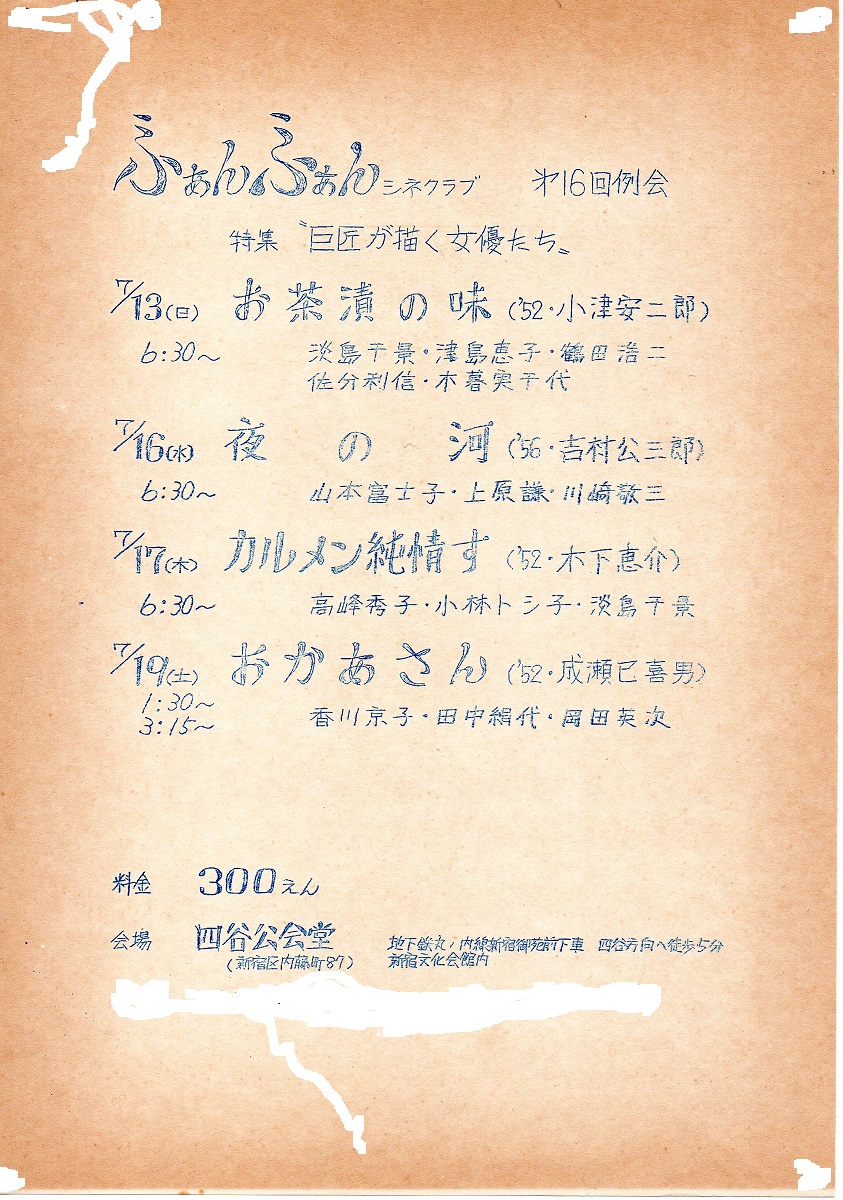 ふぁんふぁんシネクラブ 㐧16回例会
特集 〝巨匠が描く女優たち〟
7/13(日) お茶漬の味 ('52・小津安二郎)
6:30～ 淡島千景・津島恵子・鶴田浩二
佐分利信・木暮実千代
7/16(水) 夜の河 ('56・吉村公三郎)
6:30～ 山本富士子・上原謙・川崎敬三
7/17(木) カルメン純情す ('52・木下恵介)
6:30～ 高峰秀子・小林トシ子・淡島千景
7/19(土) おかあさん ('52・成瀬巳喜男)
1:30～
3:15～ 香川京子・田中絹代・岡田英次
料金 300えん
会場 四谷公会堂 地下鉄丸ノ内線新宿御苑前下車 四谷方向へ徒歩5分
(新宿区内藤町87) 新宿文化会館内